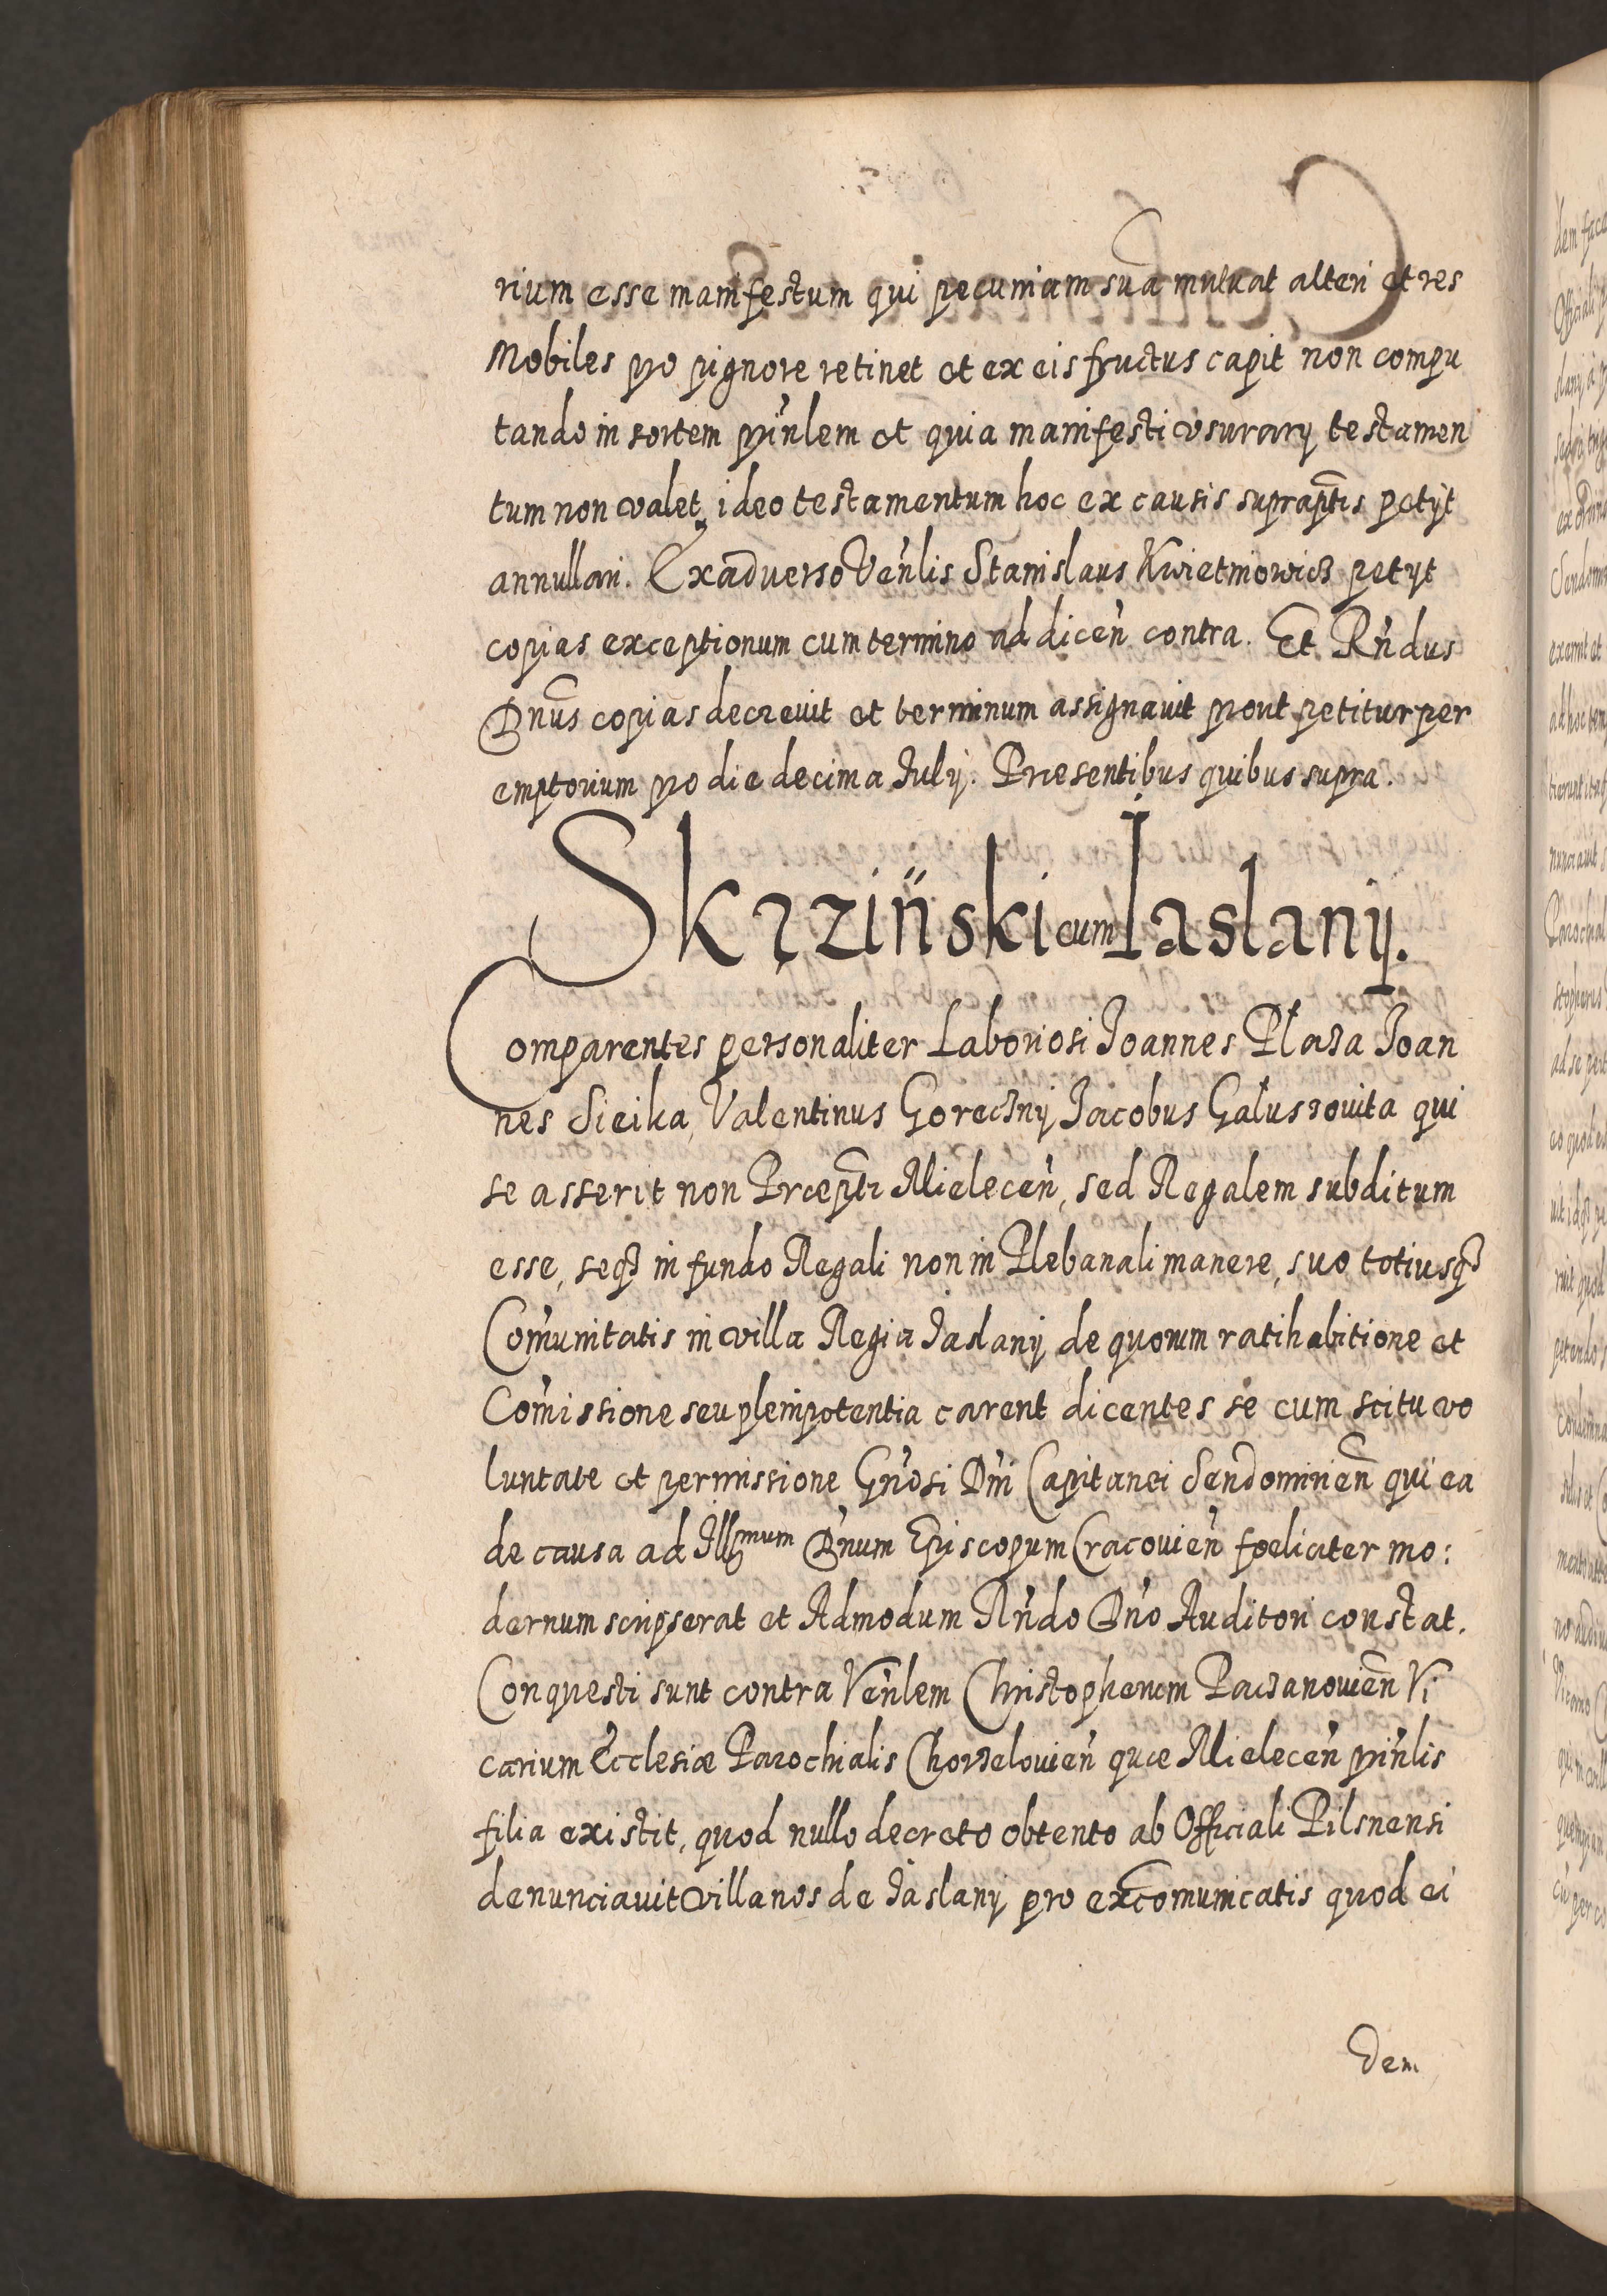 rium esse manifestum qui pecuniam suã mutuat alteri et res
Mobiles pro pignore retinet et ex eis fructus capit non compu
tando in sortem prin̄lem et quia manifesti usurarij testamen
tum non valet, ideo testamentum hoc ex causis suprap̄tis petijt
annullari. Ex adverso Ven̄lis Stanislaus Kwietniowicz petijt
copias exceptionum cum termino ad dicen̄ contra. Et Rn̄dus
Dn̄us copias decrevit et terminum assignavit prout petitur per
emptorium pro die decima Julij. Præsentibus quibus supra.
Skrziński cum Iaslany.
Comparentes personaliter Laboriosi Joannes Plaza Joan
nes Sieika, Valentinus Goreczny Jacobus Galuszovita qui
se asserit non Præp̄ti Mielecen̄, sed Regalem subditum
esse, seqꝫ in fundo Regali non in Plebanali manere, suo totiusqꝫ
Com̄unitatis in villa Regia Jaslany de quorum ratihabitione et
Com̄issione seu plenipotentia carent dicentes se cum scitu vo
luntate et permissione Gn̄osi Dn̄i Capitanei Sendomirien̄ qui ea
de causa ad Illmum Dn̄um Episcopum Cracovien̄ fœliciter mo:
dernum scripserat et Admodum Rn̄do Dn̄o Auditori constat.
Conquesti sunt contra Ven̄lem Christopherum Paczanovien̄ Vi
carium Ecclesiæ Parochialis Chorzelovien̄ quæ Mielecen̄ prin̄lis
filia existit, quod nullo decreto obtento ab Officiali Pilsnensi
denunciavit villanos de Jaslany pro excom̄unicatis quod ei
dem